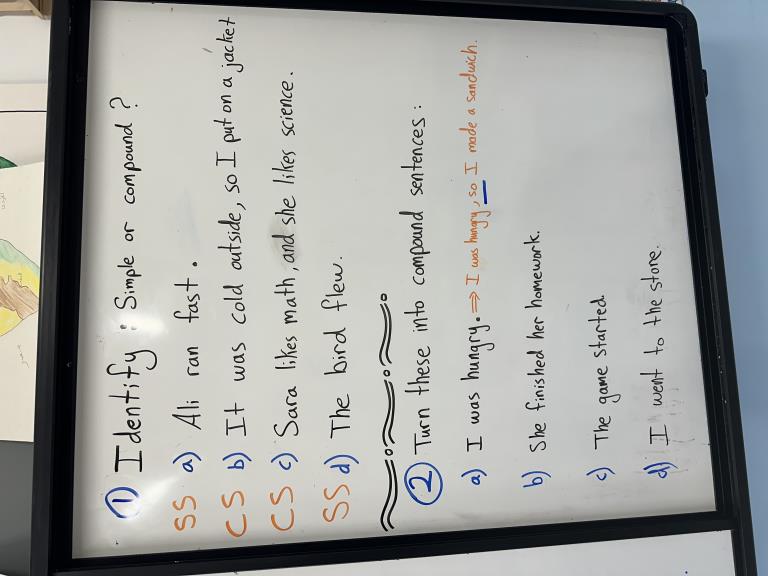 1) Identify: Simple or compound?
SS a) Ali ran fast.
CS b) It was cold outside, so I put on a jacket
CS c) Sara likes math, and she likes science.
SS d) The bird flew.
2 Turn these into compound sentences:
a) I was hungry. ⇒ I was hungry, so I made a sandwich.
b) She finished her homework.
c) The game started.
d) I went to the store.